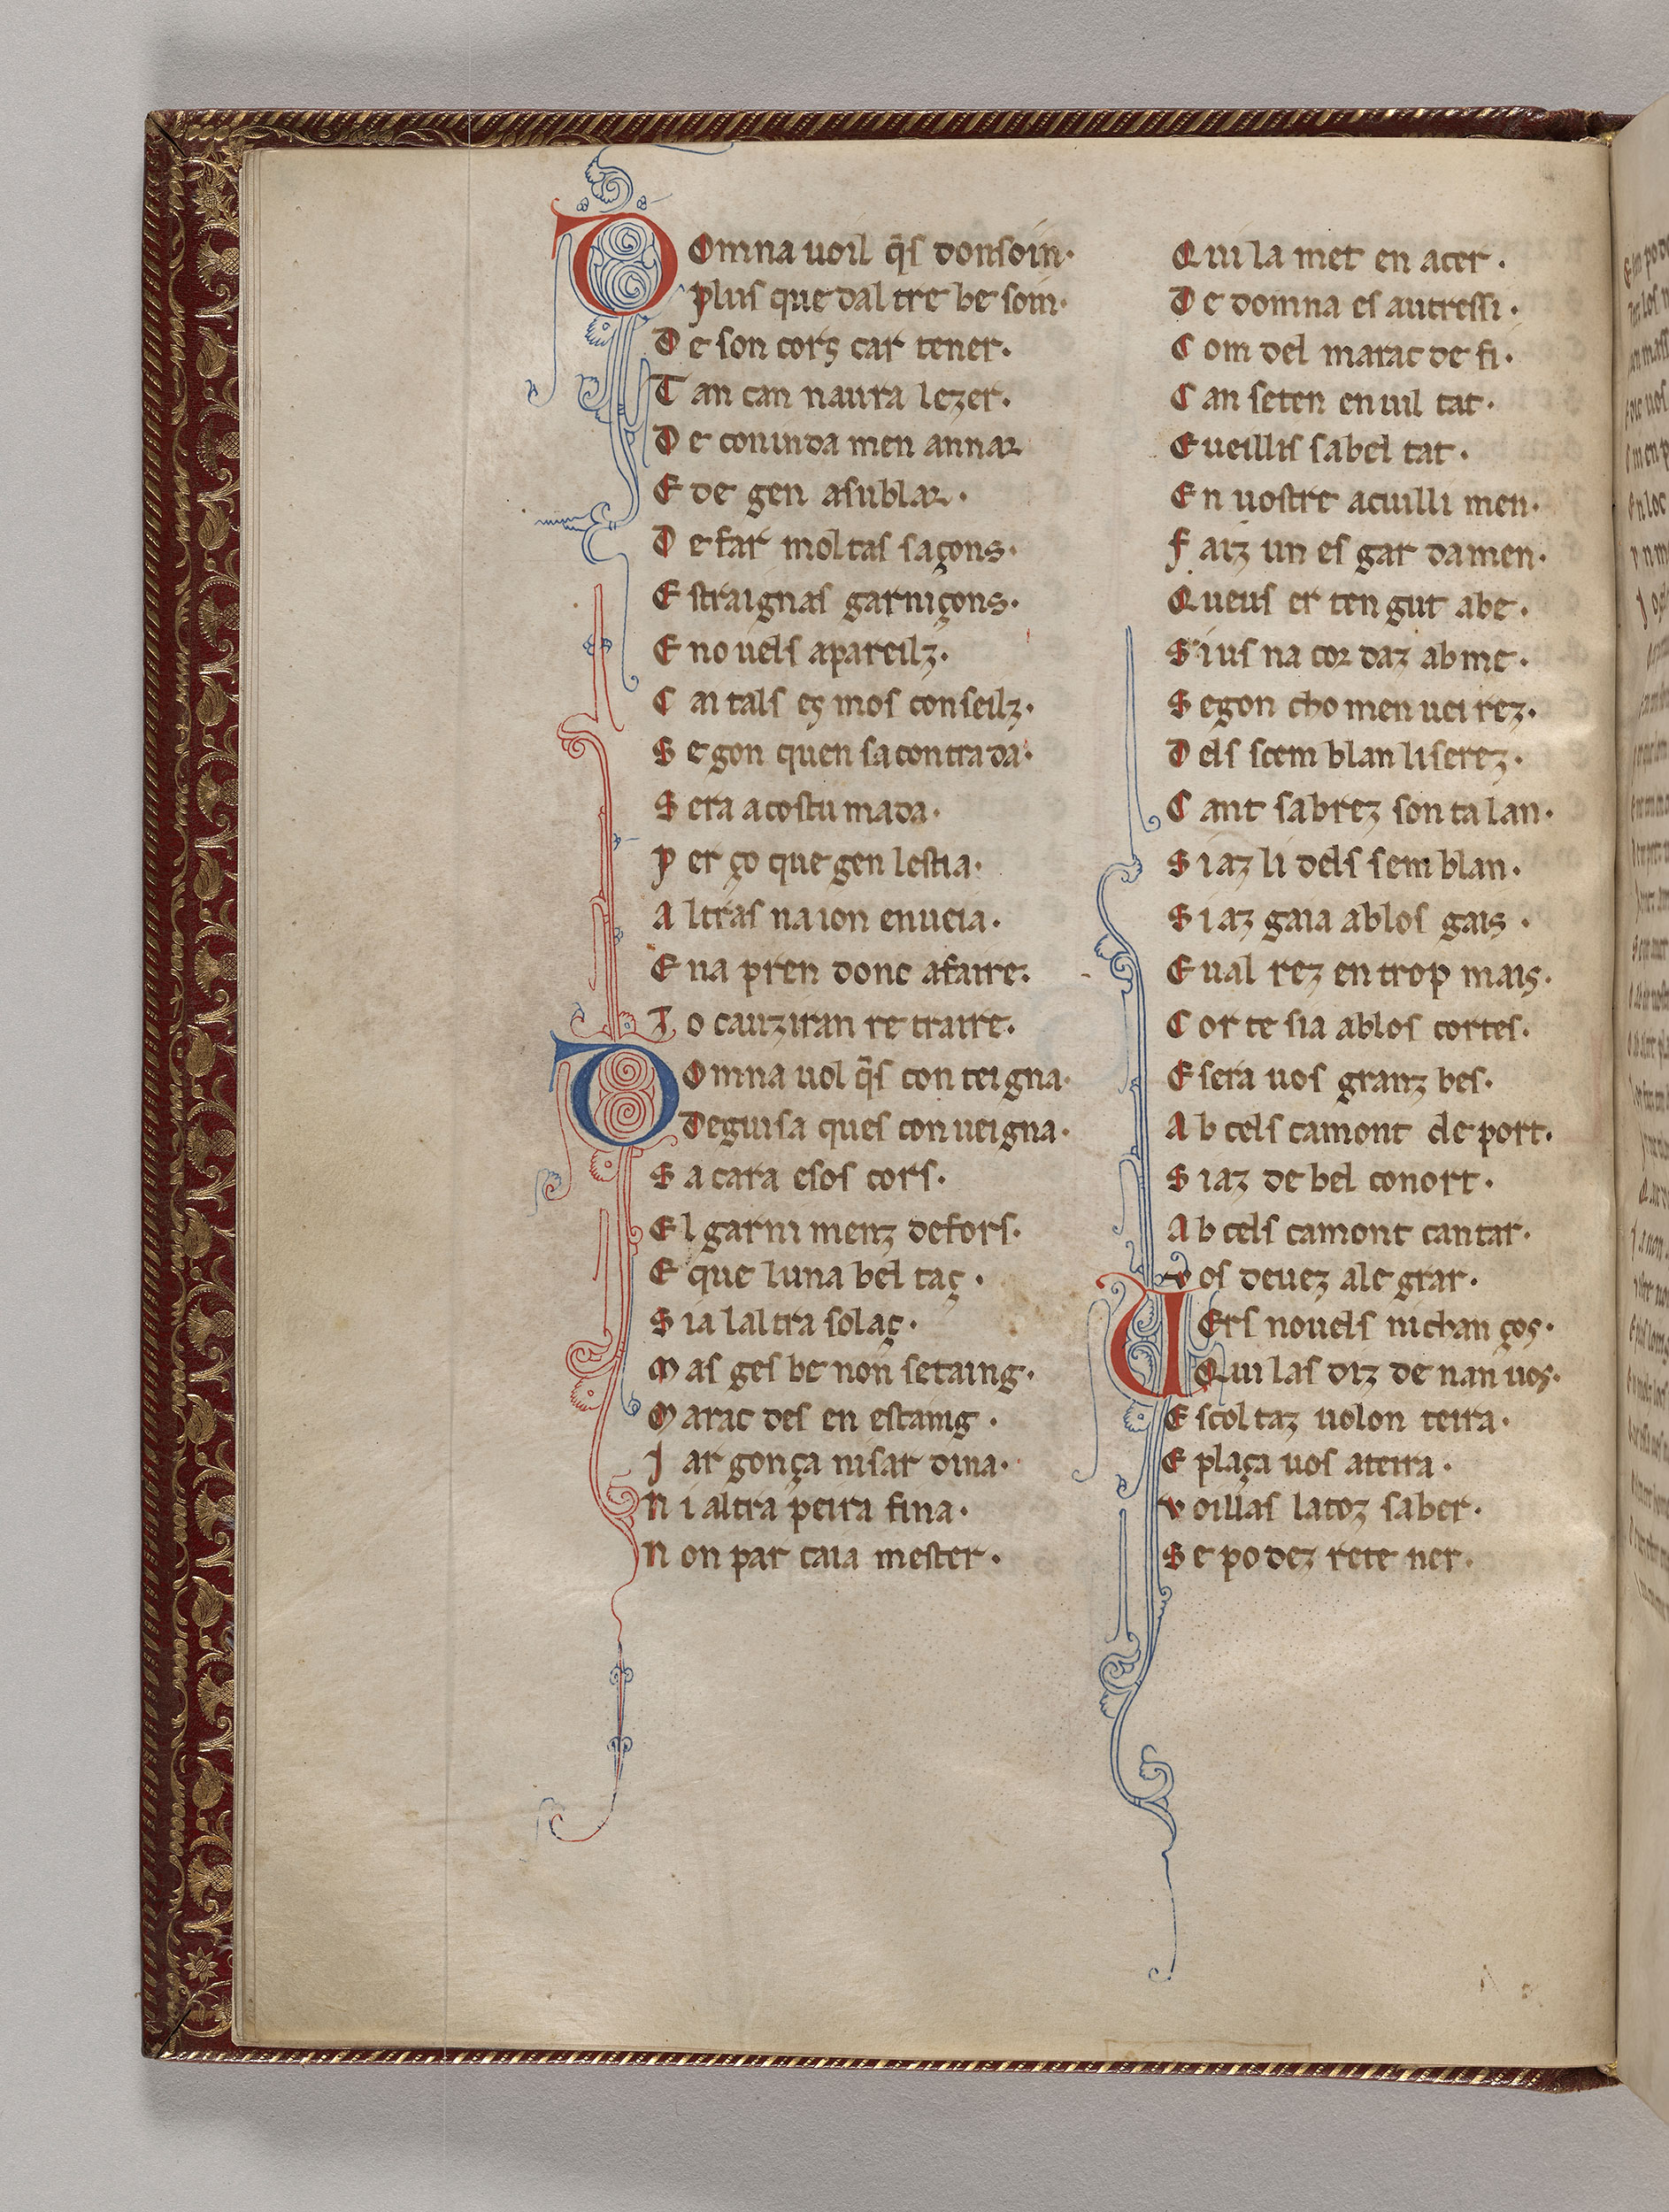 Domna uoil q̃s donsoin·
plus que dal tre be soin·
De son cors car tener·
Tan can naura lezer·
De couinda men annar
E de gen asublar·
De far moltas saçons·
Estraignas garniçons·
E no uels apareilz·
Cai tals es mos conseilz·
Segon quen sa contrada·
Sera acostu mada·
per ço que gen lestia·
Altras naion enueia·
Ena pren donc afaire·
Io cauziran re traire·
Domna uol q̃s con teigna·
Deguisa ques con ueigna·
Sa cara esos cors·
El garni menz defors·
E que luna bel taç·
Sia laltra solaç·
Mas ges be non setaing·
Marac des en estaing·
Jar gonça nisar dina·
Ni altra peira fina·
Non par caia mester·
Qui la met en acer·
De domna es autressi·
Com del marac de fi·
Can seten en uil tat·
E ueillis sa bel tat·
En uostre acuilli men·
Faiz un es gar damen·
Queus er ten gut abe·
Sius na cor daz ab me·
Segon cho men uei rez·
Dels scem blan li serez·
Cant sabrez son ta lan·
Siaz li dels sem blan·
Siaz gaia ablos gais·
E ual rez en trop mais·
Cor te sia ablos cortes·
E sera uos granz bes·
Ab cels camont de port·
Siaz de bel conort·
Ab cels camont cantar·
vos deuez ale grar·
UErs nouels ni chan ços·
Qui las diz de nan uos·
Escol taz uolon teira·
E plaça uos ateira·
voillas latoz saber·
Se po dez rete ner·